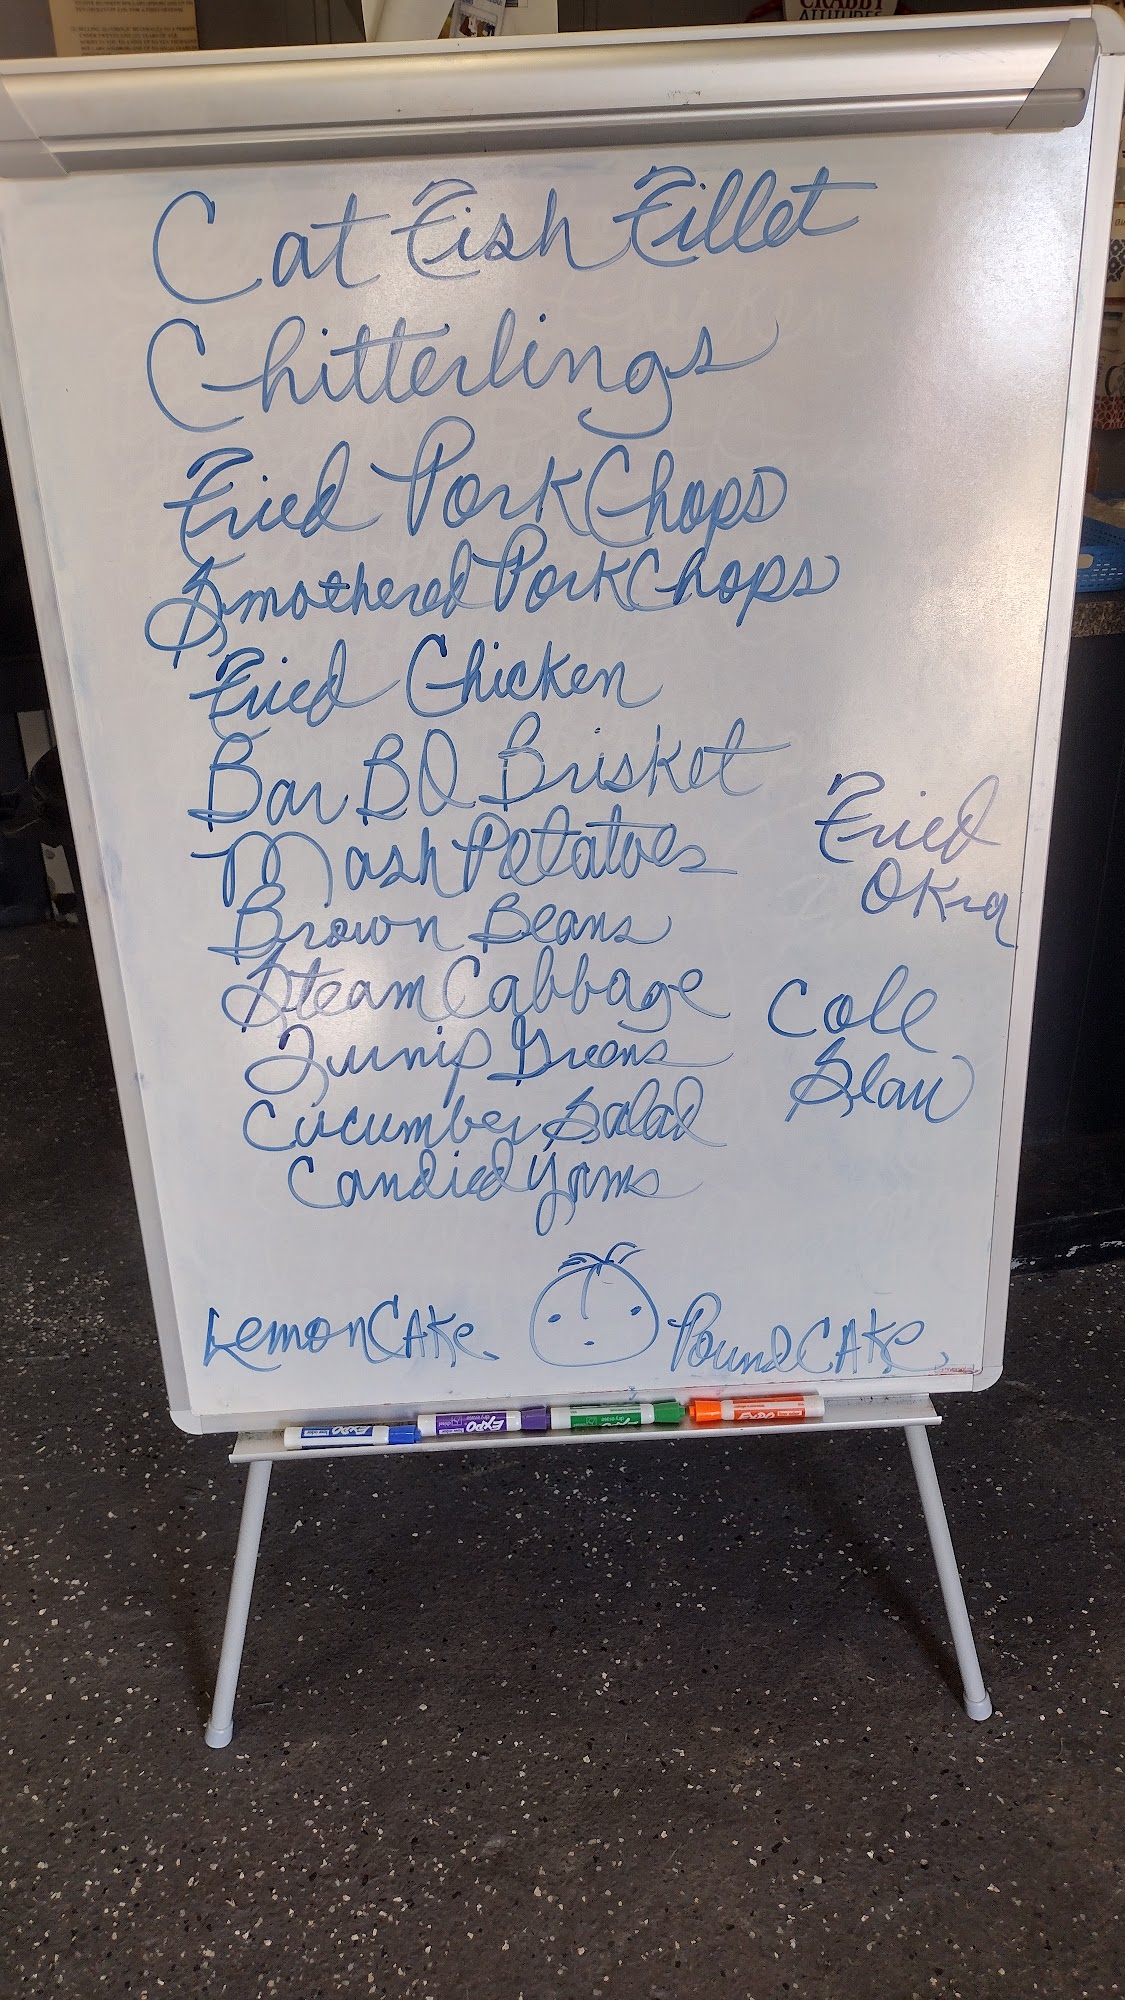 CRABBY
ATTITUDES
Cat Fish Fillet
Chitterlings
Fried Pork Chops
Smothered Pork Chops
Fried Chicken
Bar BQ Brisket
Mash Potatoes
Brown Beans
Steam Cabbage
Turnip Greens
Cucumber Salad
Candied Yams
Fried
Okra
Cole
Slaw
Lemon CAKe
Pound CAKe
EXPO
EXPO
EXPO
EXPO